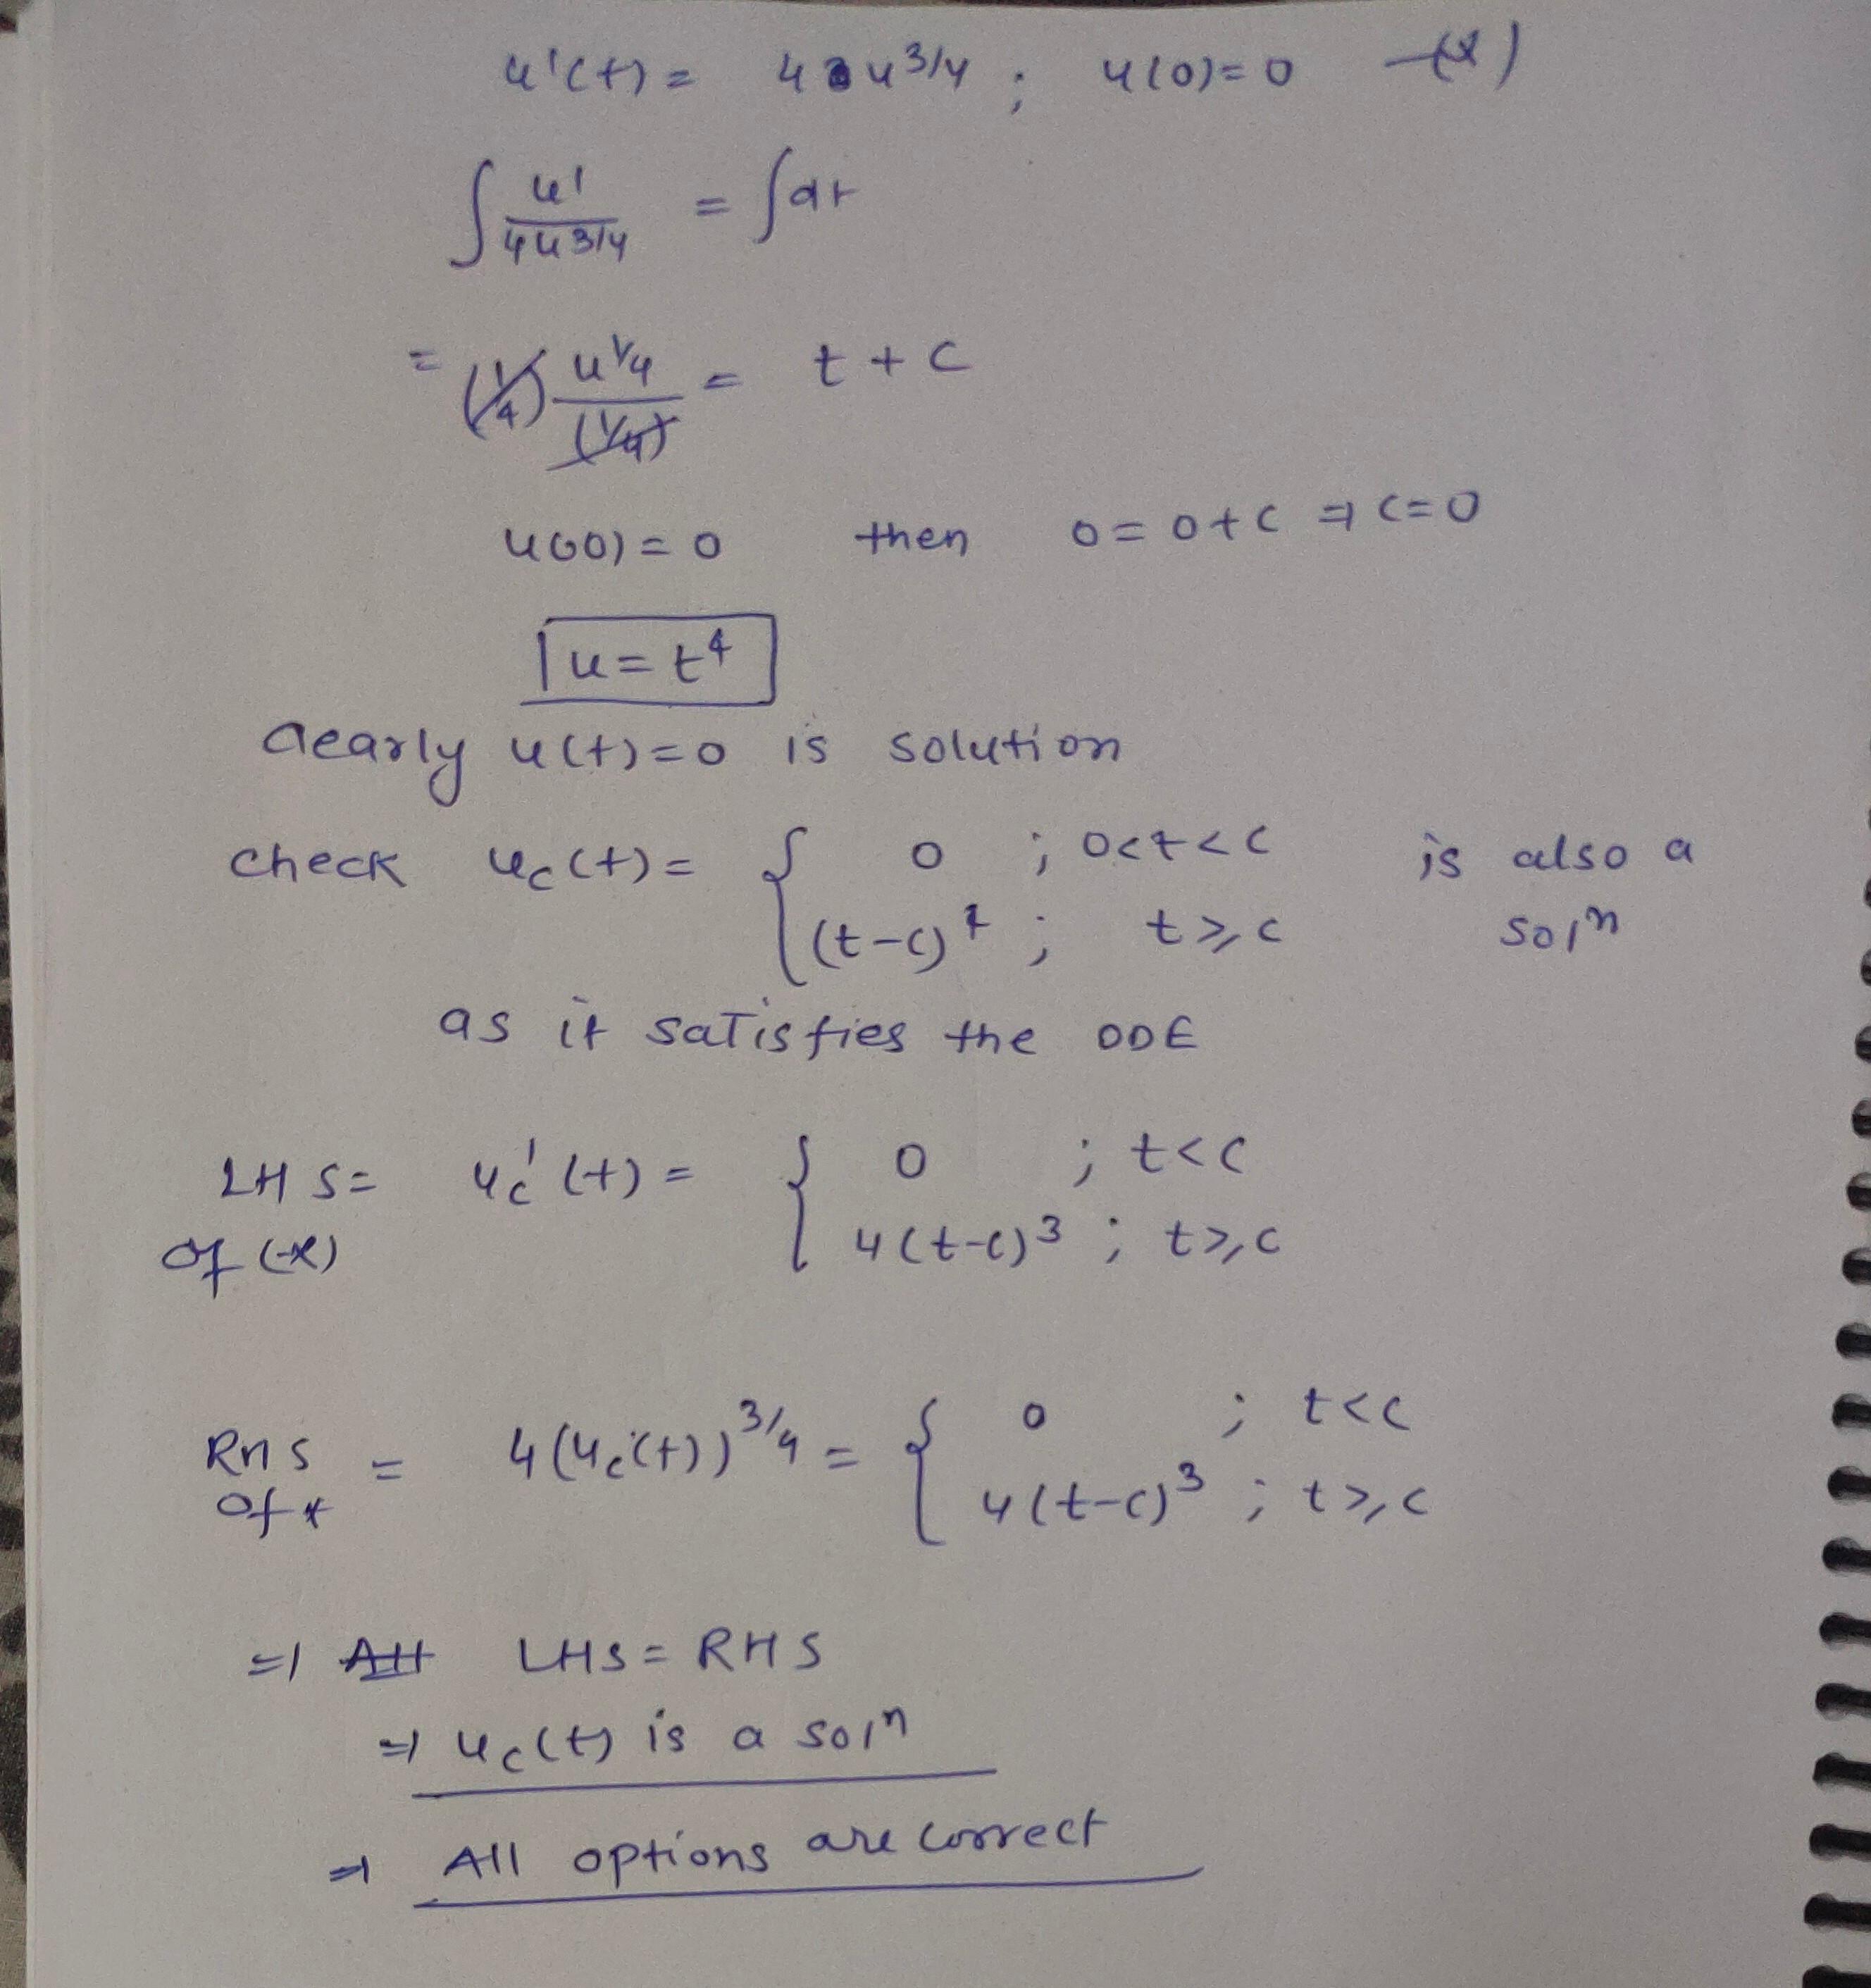 u'(t) = 4 u^{3/4} ; u(0)=0 —(*)
∫ u'/4u^{3/4} = ∫dt
= (1/4) u^{1/4}/(1/4) = t + c
u(0) = 0 then 0 = 0+c ⇒ c=0
u = t^4
clearly u(t)=0 is solution
check u_c(t) = { 0 ; 0<t<c is also a
(t-c)^4 ; t≥c sol^n
as it satisfies the ODE
LHS = u_c'(t) = { 0 ; t<c
of (*) 4(t-c)^3 ; t≥c
RHS = 4(u_c(t))^{3/4} = { 0 ; t<c
of * 4(t-c)^3 ; t≥c
⇒ LHS = RHS
⇒ u_c(t) is a sol^n
⇒ All options are correct